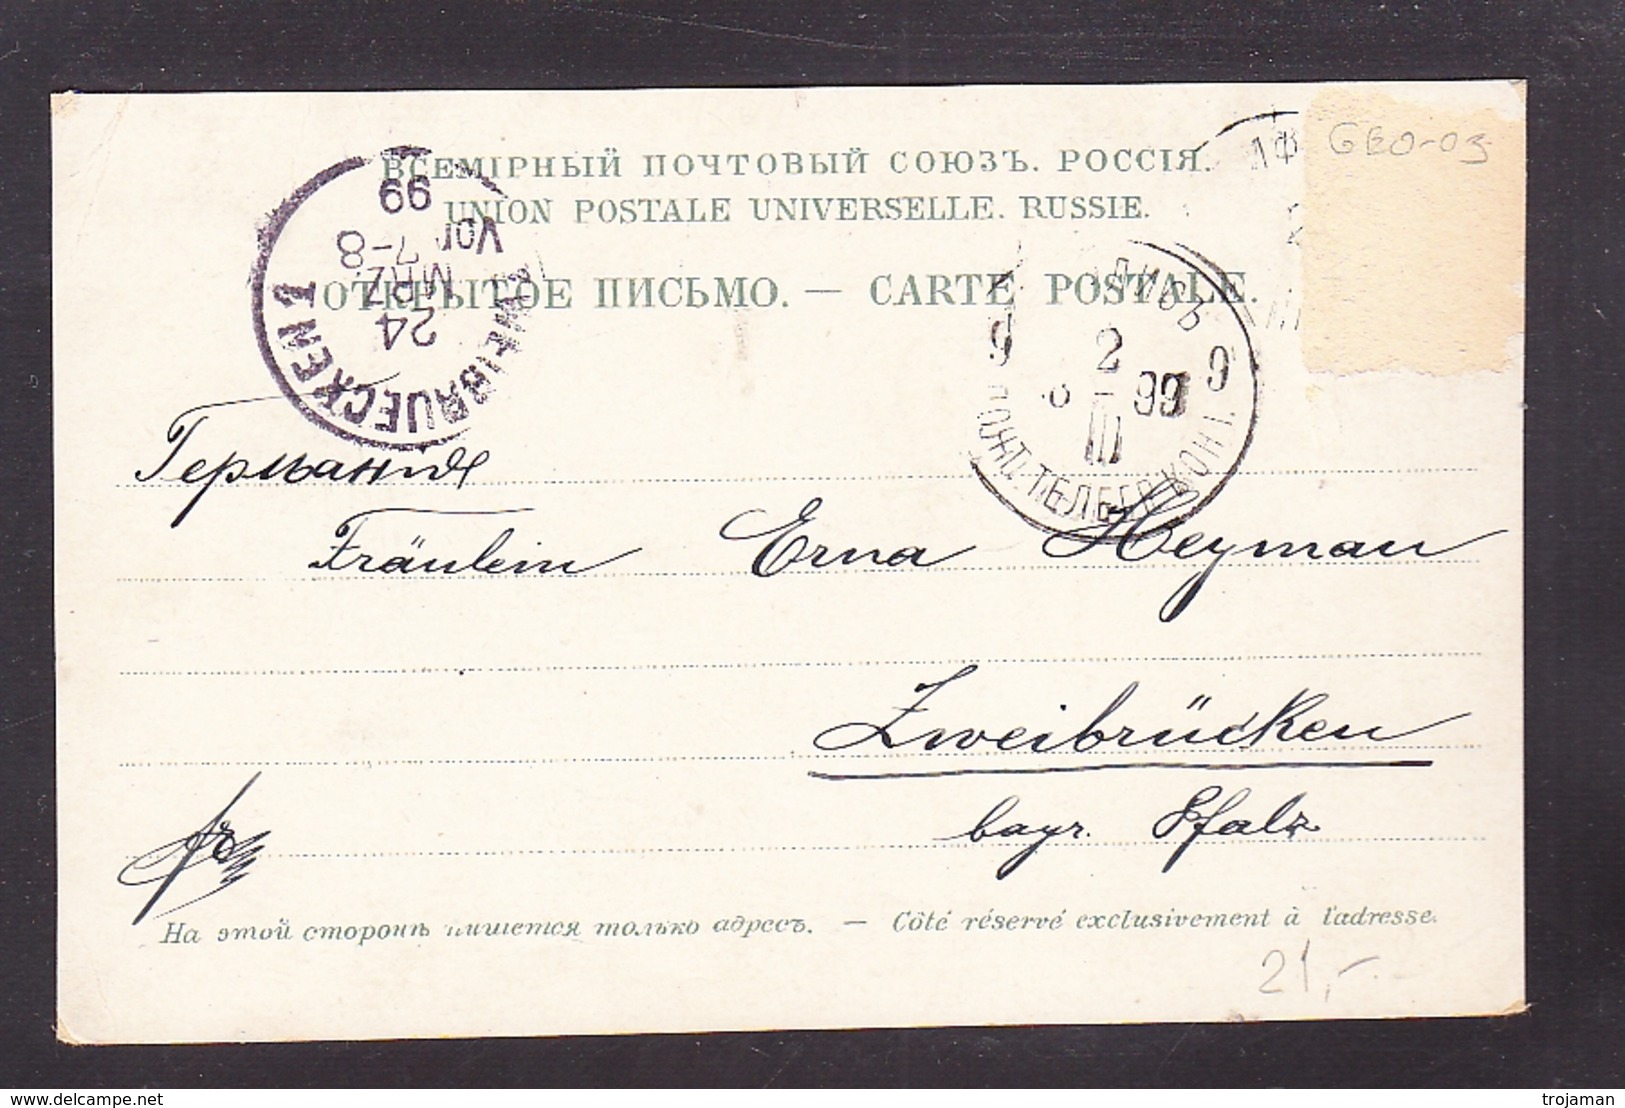 GEO-03
ВСЕМІРНЫЙ ПОЧТОВЫЙ СОЮЗЪ. РОССІЯ.
UNION POSTALE UNIVERSELLE. RUSSIE.
ОТКРЫТОЕ ПИСЬМО. — CARTE POSTALE.
ZWEIBRUECKEN 1
24
MRZ
Vor 7-8
99
2
III
99
9 9
ПОЧТ. ТЕЛЕГР. КОН.
Германия
Fräulein Erna Heyman
Zweibrücken
bayr. Pfalz
На этой сторонѣ пишется только адресъ. — Côté réservé exclusivement à l'adresse.
21,-
delcampe.net
trojaman